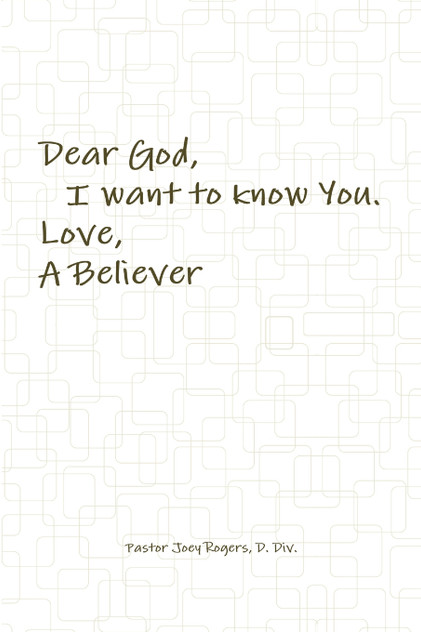 Dear God,
I want to know You.
Love,
A Believer
Pastor Joey Rogers, D. Div.